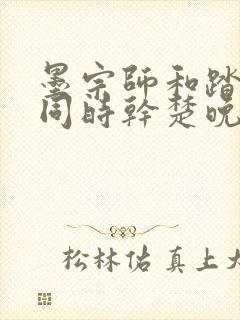 墨宗師和踏
同時幹楚晚
松林佑真上大